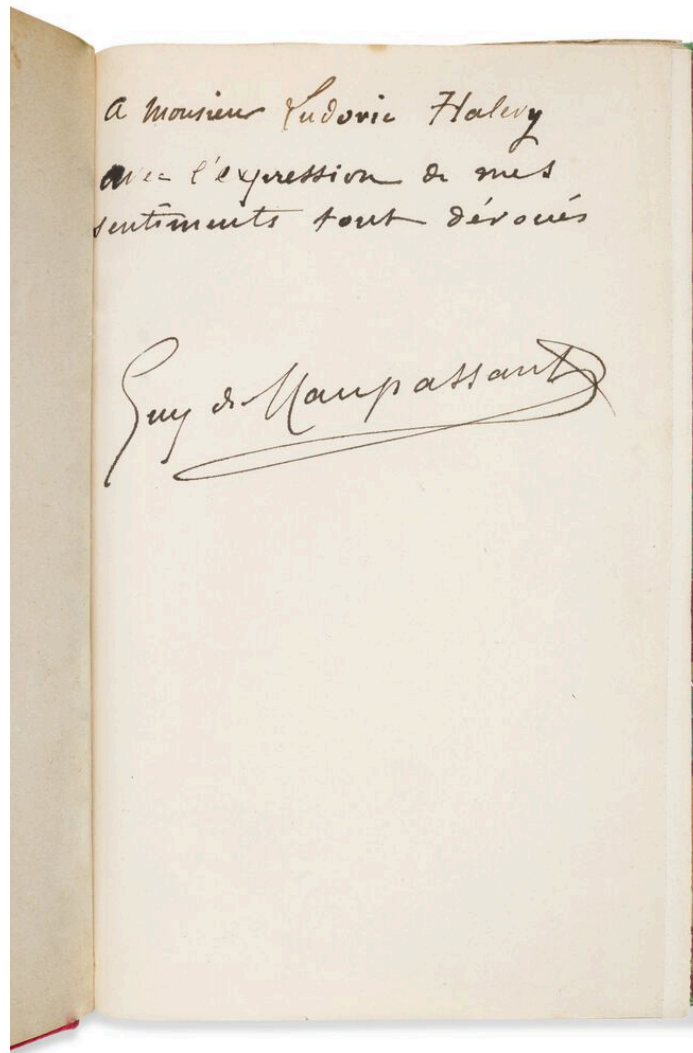 a Monsieur Ludovic Halevy
avec l'expression de mes
sentiments tout dévoués
Guy de Maupassant